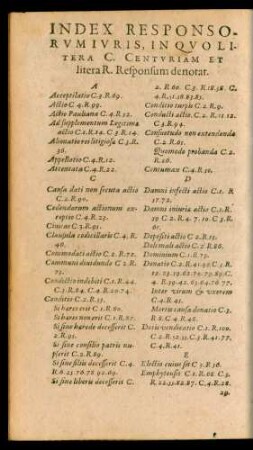 INDEX RESPONSO-
RVM IVRIS, IN QVO LI-
TERA C. CENTVRIAM ET
litera R. Responsum denotat.
A
Acceptilatio C.3.R.69.
Actio C.4.R.99.
Actio Pauliana C.4.R.2.
Ad supplementum Legitima
actio C.1.R.14. C.3.R.14.
Alienatio rei litigiosa C.3.R.
36.
Appellatio C.4.R.12.
Attentata C.4.R.22.
C
Causa dati non secuta actio
C.2.R.90.
Cedendarum actionum ex-
ceptio C.4.R.25.
Ciuitas C.3.R.91.
Clausula codicillaris C.4.R.
40.
Commodati actio C.2.R.72.
Communi diuidundo C.2.R.
75.
Condictio indebiti C.1.R.44.
C.3.R.84. C.4.R.20.74.
Conditio C.2.R.37.
Si hæres erit C.1.R.80.
Si hæres non erit C.1.R.81.
Si sine hærede decesserit C.
2.R.21.
Si sine consilio patris nu-
pserit C.2.R.69.
Si sine filiis decesserit C.4.
Si sine liberis decesserit C.
2.R.60. C.3.R.18.58. C.
Conditio turpis C.2.R.9.
Conducti actio C.2.R.11.12.
C.3.R.94.
Consuetudo non extendenda
C.2.R.61.
Quomodo probanda C.2.
R.26.
Consumen C.4.R.30.
D
Damni infecti actio C.1. R
17.72.
Damni iniuria actio C.1.R.
Depositi actio C.2.R.19.
Doli mali actio C.2.R.88.
Dominium C.1.R.73.
inter virum & vxorem
C.4.R.41.
Mortis causa donatio C.3.
R.8. C.4.R.42.
Doris vendicatio C.1.R.100.
C.2.R.32.33. C.3.R.41.77.
C.4.R.41.
E
Electio cuius sit C.3.R.36.
Emphyteusis C.1.R.68. C.3.
R.22.33.82.87. C.4.R.28.
29.